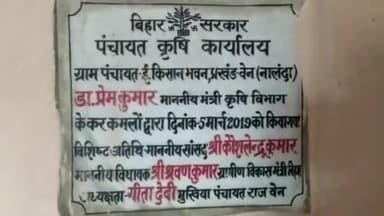 बिहार सरकार
पंचायत कृषि कार्यालय
ग्राम पंचायत-ई. किसान भवन, प्रखंड-बेन (नालंदा)
डा. प्रेम कुमार माननीय मंत्री कृषि विभाग
के कर कमलों द्वारा दिनांक-5 मार्च 2019 को किया गया
विशिष्ट अतिथि-माननीय सांसद श्री कौशलेन्द्र कुमार
माननीय विधायक श्री श्रवण कुमार ग्रामीण विकास मंत्री
अध्यक्षता-गीता देवी मुखिया पंचायत राज बेन